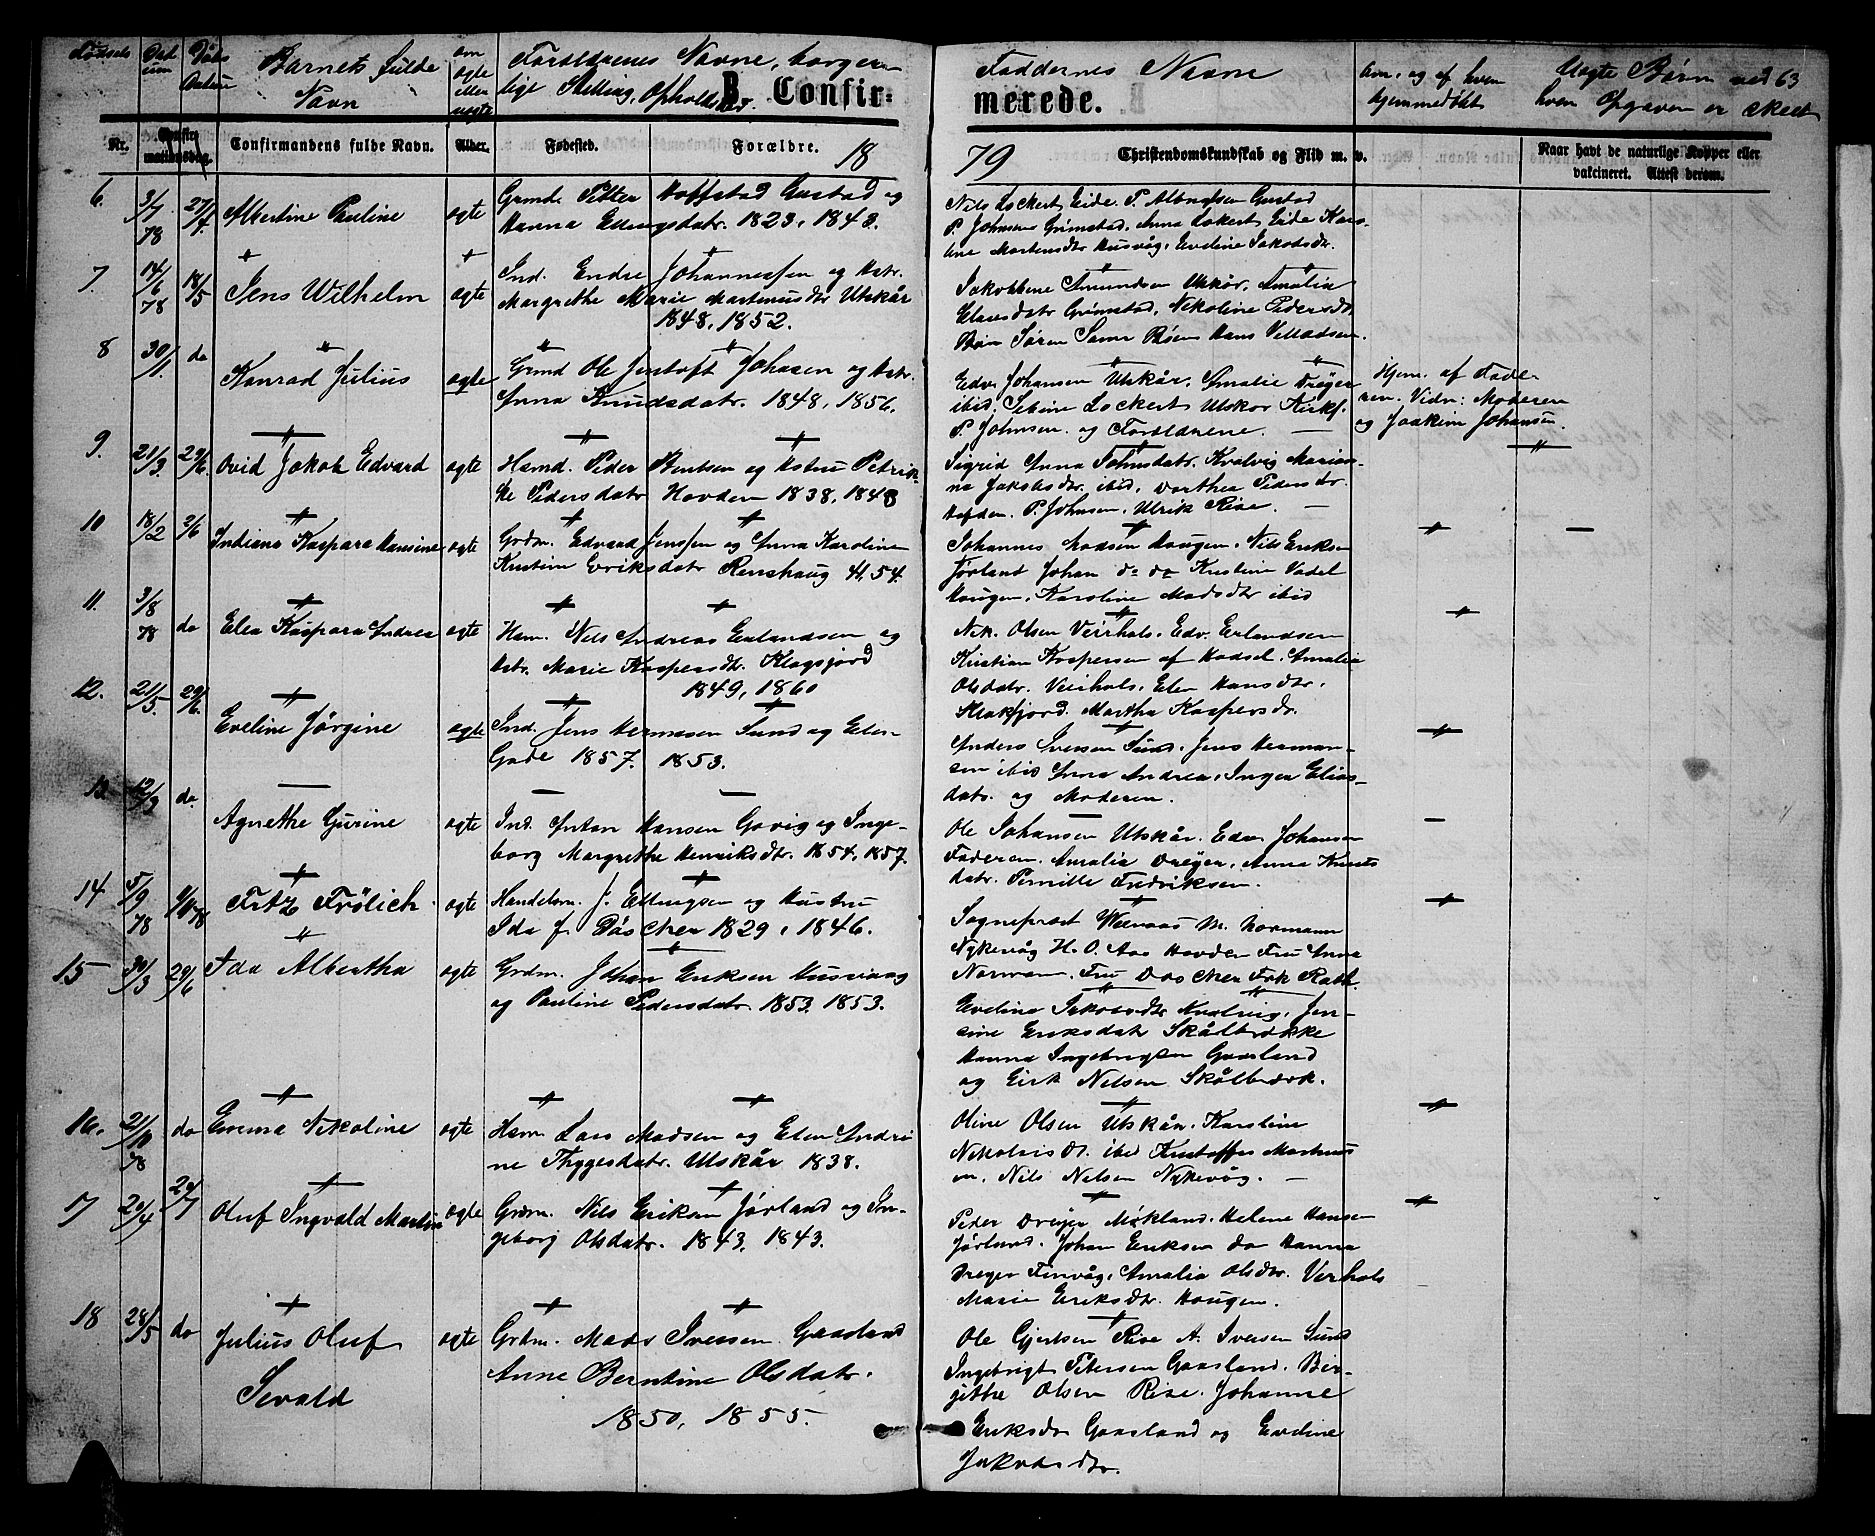 Fødsels Datum Daabs Datum Barnets fulde Navn om ægte eller uægte Forældrenes Navne, borgerlige Stilling, Opholdssted
B. Confirmerede.
Faddernes Navne
om, og af hvem hjemmedøbt
Uægte Børn ved 63
hvem Opgaven er skeet
Nr. Confirmationsdag. Confirmandens fulde Navn. Alder. Fødested. Forældre. 18
79 Christendomskundskab og Flid m. v. Naar havt de naturlige Kopper eller
vakcineret. Attest derom.
6. 3/7 78 27/4 Albertine Pauline ægte Grmd. Petter Hoffstad Gustad og
Hanna Ellingsdatr. 1823, 1843.
Nils Lockert Eide. P. Gustad
P. Johnsen Grimstad, Anna Lockert Eide
Martensdtr Husvåg, Eveline Jakobsdr.
7. 14/6 78 18/5 Jens Wilhelm ægte Ind. Endre Johannessen og Hstr.
Margrethe Marie Martinusdtr Utskår
1848, 1852.
Jakobine Amundsen Utskår, Amalia
Clausdatr Grimstad, Nikoline Pedersdr
Bøen Søren Bøen Hans Villadsen.
8 30/1. do Konrad Julius ægte Grmd Ole Jentoft Johasen og Hstr.
Anna Knudsdatr. 1848, 1856.
Edv. Johansen Utskår, Amalie Dreyer
ibid, Sebine Lockert Utskor Kirks.
P. Johnsen. og Forældrene.
Hjem. af Faderen. Vidn: Moderen
og Joakim Johansen.
9. 21/3. 29/6. Ovid Jakob Edvard ægte Hsmd. Peder Bentsen og Hstru Petrikke
Pedersdatr Hovden 1838, 1843
Sigrid Anna Johnsdatr. Kvalvig Marianna
Jakobsdtr. ibid, Dorthea Pedersdr.
Hofden. P. Johnsen, Ulrik Rise.
10 18/2 2/6 Indiana Kaspara Hansine ægte Grdm. Edvard Jenssen og Anna Karoline
Kristine Eriksdatr Renshaug 41, 54.
Johannes Madsen Haugen. Nils Eriksen
Jørland Johan do do Kristine Vadel
Haugen. Karoline Madsdtr ibid
11. 3/8 78 do Elea Kaspara Andrea ægte Hsm. Nils Andreas Erlandsen og
Hstr. Marie Kaspersdtr. Klogsjord
1849, 1860
Nik. Olsen Veirhols. Edv. Erlandsen
Kristian Kaspersen af Hadsel. Amalia
Olsdatr. Veirhols. Elen Hansdtr.
Klakfjord. Martha Kaspersdr.
12. 21/5. 29/6. Eveline Jørgine ægte Ind. Jens Hermasen Sund og Elen
Gade 1857. 1853.
Anders Iversen Sund. Jens Hermansen
ibid Anna Andrea. Inger Eliasdatr.
og Moderen.
13 12/3 do Agnethe Gurine ægte Ind. Anton Hansen Gavig og Ingeborg
Margrethe Henriksdtr. 1854, 1857.
Ole Johansen Utskår. Edv. Johansen
Faderen. Amalia Dreyer, Anna Knutsdatr.
Pernille Fredriksen.
14 5/9 78 Fritz Frölich ægte Handelsm. J. Ellingsen og Hustru
Ida f. Däscher 1829, 1846.
Sogneprest M. Normann
Nykevåg H. O. Aas Hovden Fru Anna
Norman. Fru Däscher Frk Rath.
15 30/3 29/6 Ida Albertha ægte Grdm. Johan Eriksen Husvaag
og Pauline Pedersdatr. 1853. 1853.
Evelina Jakobsdtr Kvalvig, Jensine
Eriksdatr Skålbrække
Hanna Ingebrigtsen Gaasland
og Eirk Nilsen Skålbræk.
16. 21/10 78 do Emma Nikoline ægte Hsm Lars Madsen og Elen Andrine
Thygesdatr. Utskår 1838.
Oline Olsen Utskår. Karoline
Nikolaisdr. ibid Kristoffer
Nils Nelsen Nykevåg.
17 20/4 20/7 Oluf Ingvald Martin ægte Grdm. Nils Eriksen Jørland og Ingeborg
Olsdatr. 1843, 1843.
Peder Dreyer Mikland. Helene Hansen
Jørland. Johan Eriksen do Hanna
Dreyer Finvåg, Amalia Olsdtr. Verhols
Marie Eriksdtr. Haugen.
18 28/5 do Julius Oluf
Sevald
ægte Grdm. Mads Iverssen Gaasland
Anne Berntine Olsdatr.
1850, 1855.
Ole Gjertsen Rise A. Iversen Sund
Ingebrigt Petersen Gaasland. Birgitthe
Olsen Rise. Johanne
Eriksdr Gaasland og Eveline
Jakobsdtr.